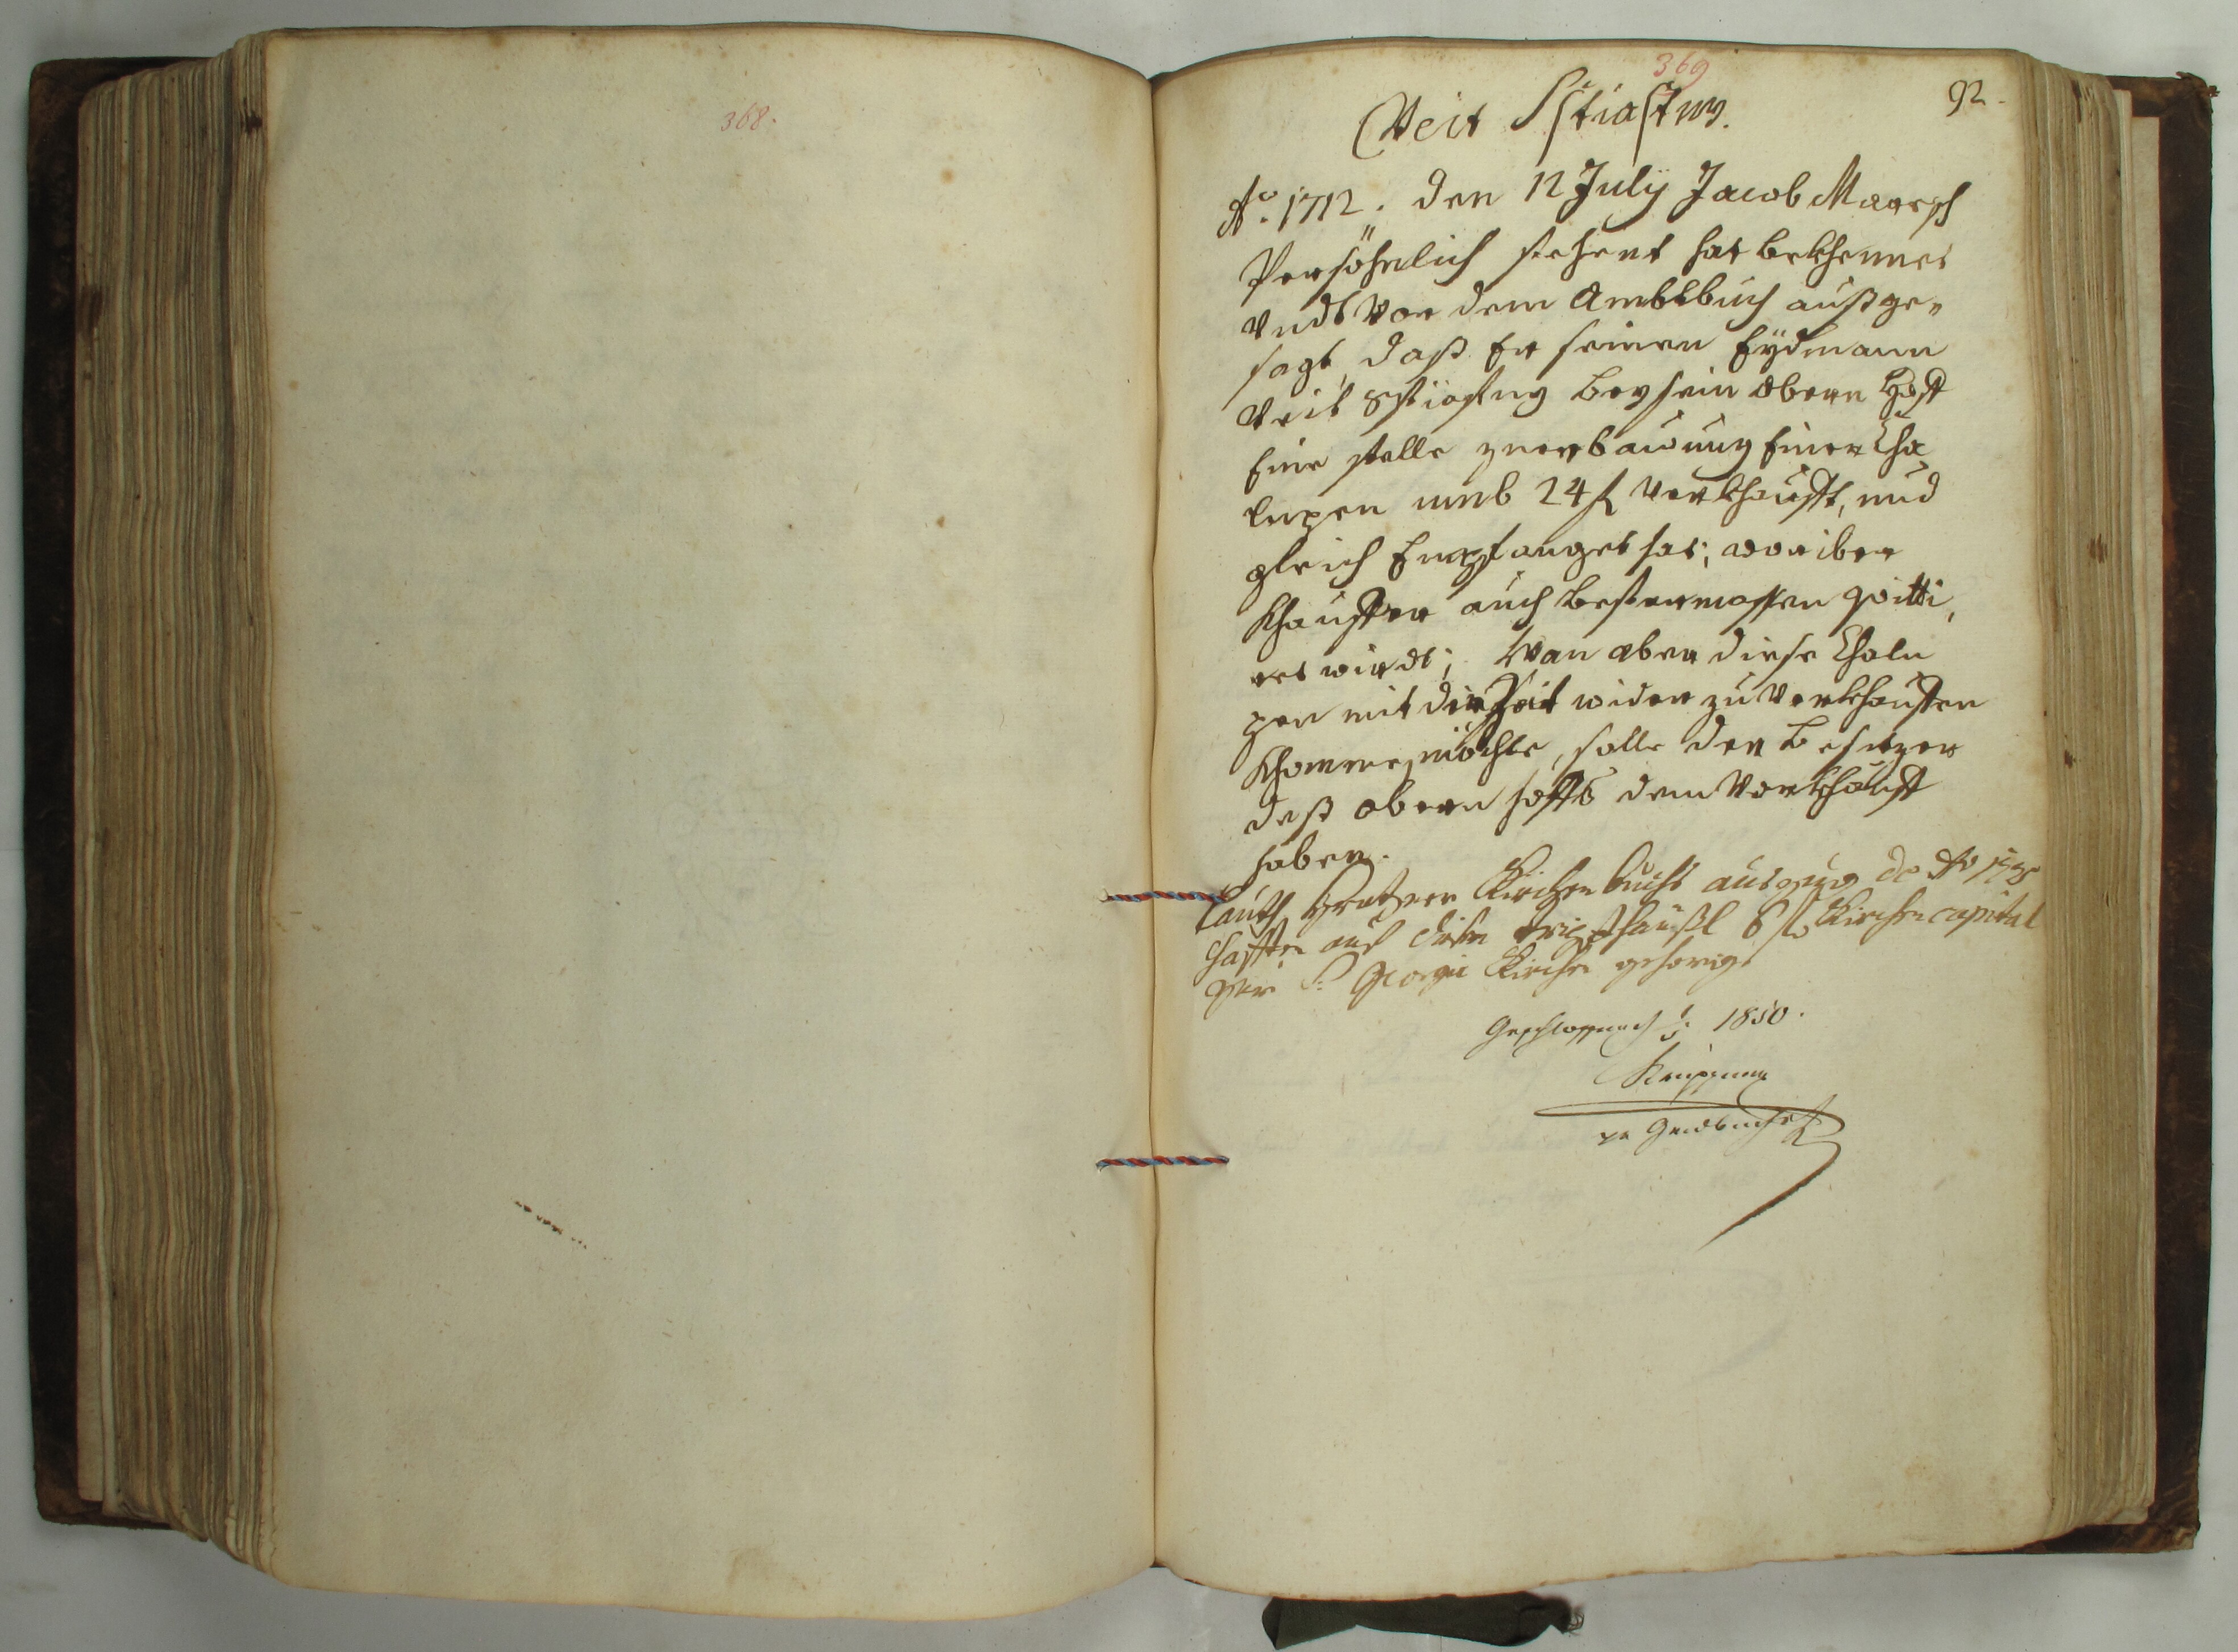 368.
369
92.
Veit Sstiastny.
Ao. 1712. den 12 July Jacob Maresch
Persöhnlich stehent hat bekhennet
Vndt Vor dem Ambtbuch außge„
sagt, daß Er seinen Eydmann
Veit Sstiastny bey sein obern Hoff
Eine stelle zuerbauung Einer Cha
lupen umb 24 f Verkhaufft, und
gleich Empfanget hat; woriber
Khauffer auch bestermassen quitti„
ret wirdt; Wan aber diese Chalu
pen mit der Zeit wider zu Verkhauffen
Khommen möchte, solle der besitzer
deß obern hoffs dem Vorkhauff
haben.
Lauth Kirchenbuchs auszug de Ao
hafften auf diesen häußl 6 Kirchen capital
der S: Georgii Kirchen gehörig
Geschlossen 1850.